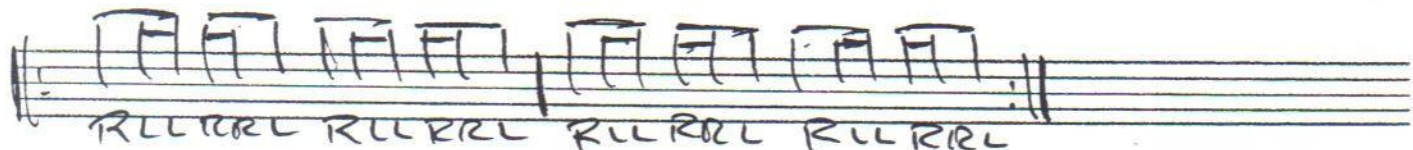 RLL RRL RLL RRL RLL RRL RLL RRL